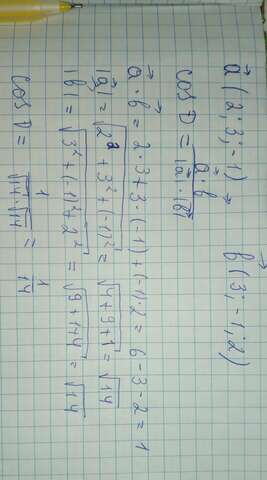 a⃗ (2; 3; -1) b⃗ (3; -1; 2)
cos D = a⃗ · b⃗ / |a⃗| · |b⃗|
a⃗ · b⃗ = 2 · 3 + 3 · (-1) + (-1) · 2 = 6 - 3 - 2 = 1
|a⃗| = √(2² + 3² + (-1)²) = √(4 + 9 + 1) = √14
|b⃗| = √(3² + (-1)² + 2²) = √(9 + 1 + 4) = √14
cos D = 1 / √14 · √14 = 1 / 14